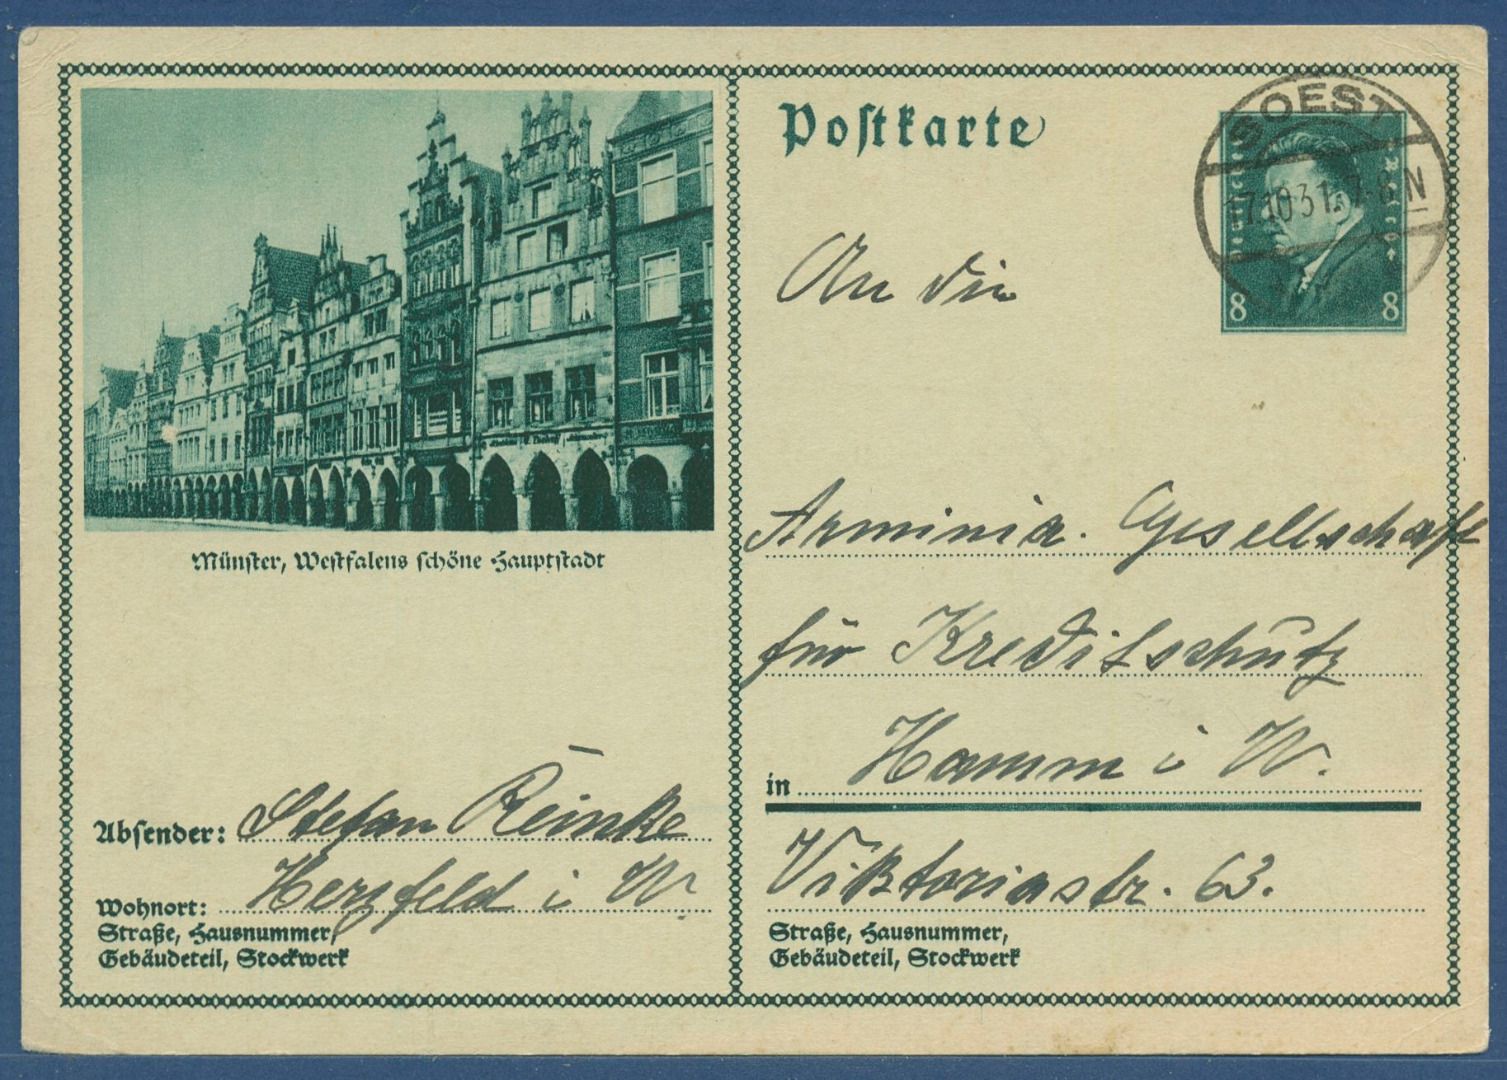 Münster, Westfalens schöne Hauptstadt
Absender: Stefan Reinke
Wohnort: Herzfeld i W.
Straße, Hausnummer,
Gebäudeteil, Stockwerk
Postkarte
Deutsches Reich
8 8
SOEST
17.10.31. 7-8 N
An die
Arminia. Gesellschaft
für Kreditschutz
in Hamm i W.
Viktoriastr. 63.
Straße, Hausnummer,
Gebäudeteil, Stockwerk